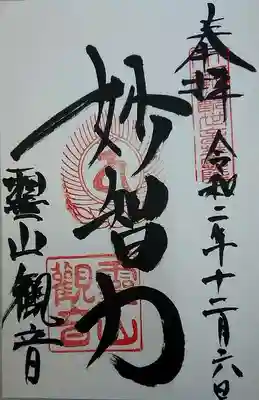 奉拝
令和二年十二月六日
妙智力
靈山観音
靈山
観音